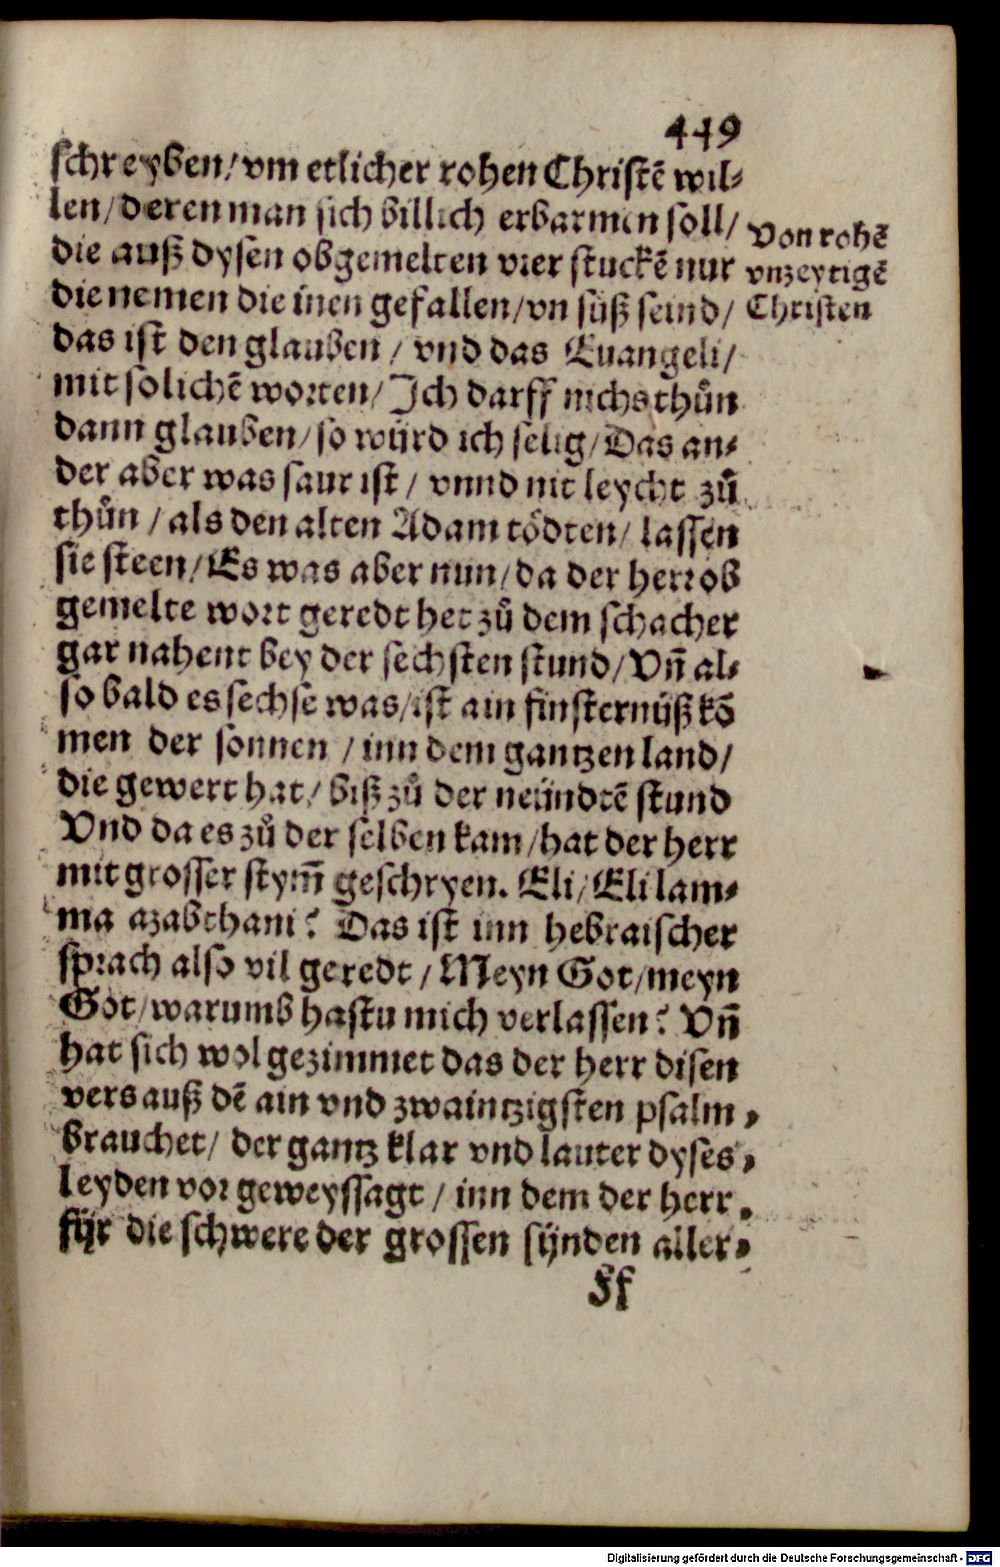 449
schreyben/ vm etlicher rohen Christē wil⸗
len/ deren man sich billich erbarmen soll/
die auß dysen obgemelten vier stuckē nur
die nemen die inen gefallen/ vn süß seind/
das ist den glauben / vnd das Euangeli/
mit solichē worten/ Ich darff nichs thůn
dann glauben/ so würd ich selig/ Das an⸗
der aber was saur ist / vnnd nit leycht zů
thůn / als den alten Adam tödten/ lassen
sie steen/ Es was aber nun/ da der herr ob
gemelte wort geredt het zů dem schacher
gar nahent bey der sechsten stund/ Vñ al⸗
so bald es sechse was/ ist ain finsternüß kō
men der sonnen / inn dem gantzen land/
die gewert hat/ biß zů der neündtē stund
Vnd da es zů der selben kam/ hat der herr
mit grosser stym̄ geschryen. Eli/ Eli lam⸗
ma azabthani? Das ist inn hebraischer
sprach also vil geredt / Meyn Got/ meyn
Got/ warumb hastu mich verlassen? Vñ
hat sich wol gezimmet das der herr disen
vers auß dē ain vnd zwaintzigsten psalm
brauchet/ der gantz klar vnd lauter dyses
leyden vor geweyssagt / inn dem der herr
für die schwere der grossen sünden aller⸗
Ff
Von rohē
vnzeytigē
Christen
Digitalisierung gefördert durch die Deutsche Forschungsgemeinschaft - DFG